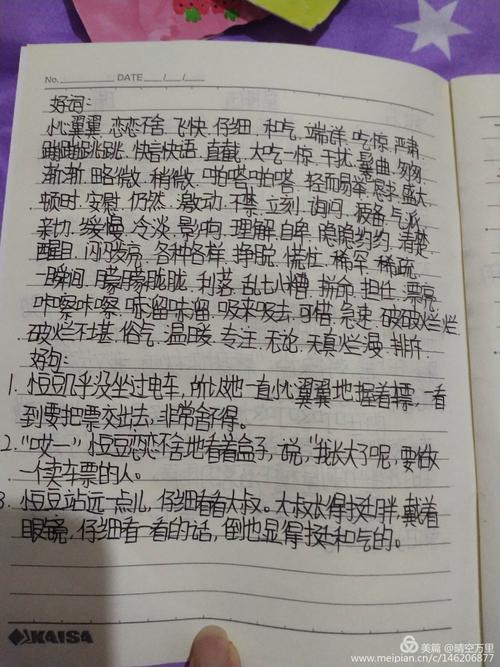 No. DATE / /
好词:
小心翼翼. 恋恋不舍. 飞快. 仔细. 和气. 端详. 吃惊. 严肃.
蹦蹦跳跳. 快言快语. 直截. 大吃一惊. 干扰. 晕曲. 匆匆.
渐渐. 略微. 稍微. 啪嗒啪嗒. 轻而易举. 恳求. 盛大.
顿时. 安慰. 仍然. 激动. 不禁. 立刻. 询问. 预备. 气派.
亲切. 缓慢. 冷淡. 影响. 理解. 自卑. 隐隐约约. 清楚.
醒目. 闪闪发亮. 各种各样. 挣脱. 慌忙. 稀罕. 稀疏.
一瞬间. 朦朦胧胧. 利落. 乱七八糟. 拼命. 担任. 漂亮.
咔嚓咔嚓. 哧溜哧溜. 吸来吸去. 可惜. 急速. 破破烂烂.
破烂不堪. 俗气. 温暖. 专注. 无论. 天真烂漫. 排斥.
好句:
1. 小豆豆几乎没坐过电车, 所以她一直小心翼翼地握着票, 一看
到要把票交出去, 非常舍不得。
2. “哎一”小豆豆恋恋不舍地看着盒子, 说, “我长大了呢, 要做
一个卖车票的人。
3. 小豆豆站远一点儿, 仔细看看大叔。大叔长得挺胖, 戴着
眼镜, 仔细看一看的话, 倒也显得挺和气的。
KAISA
美篇 @晴空万里
www.meipian.cn/c/146206877